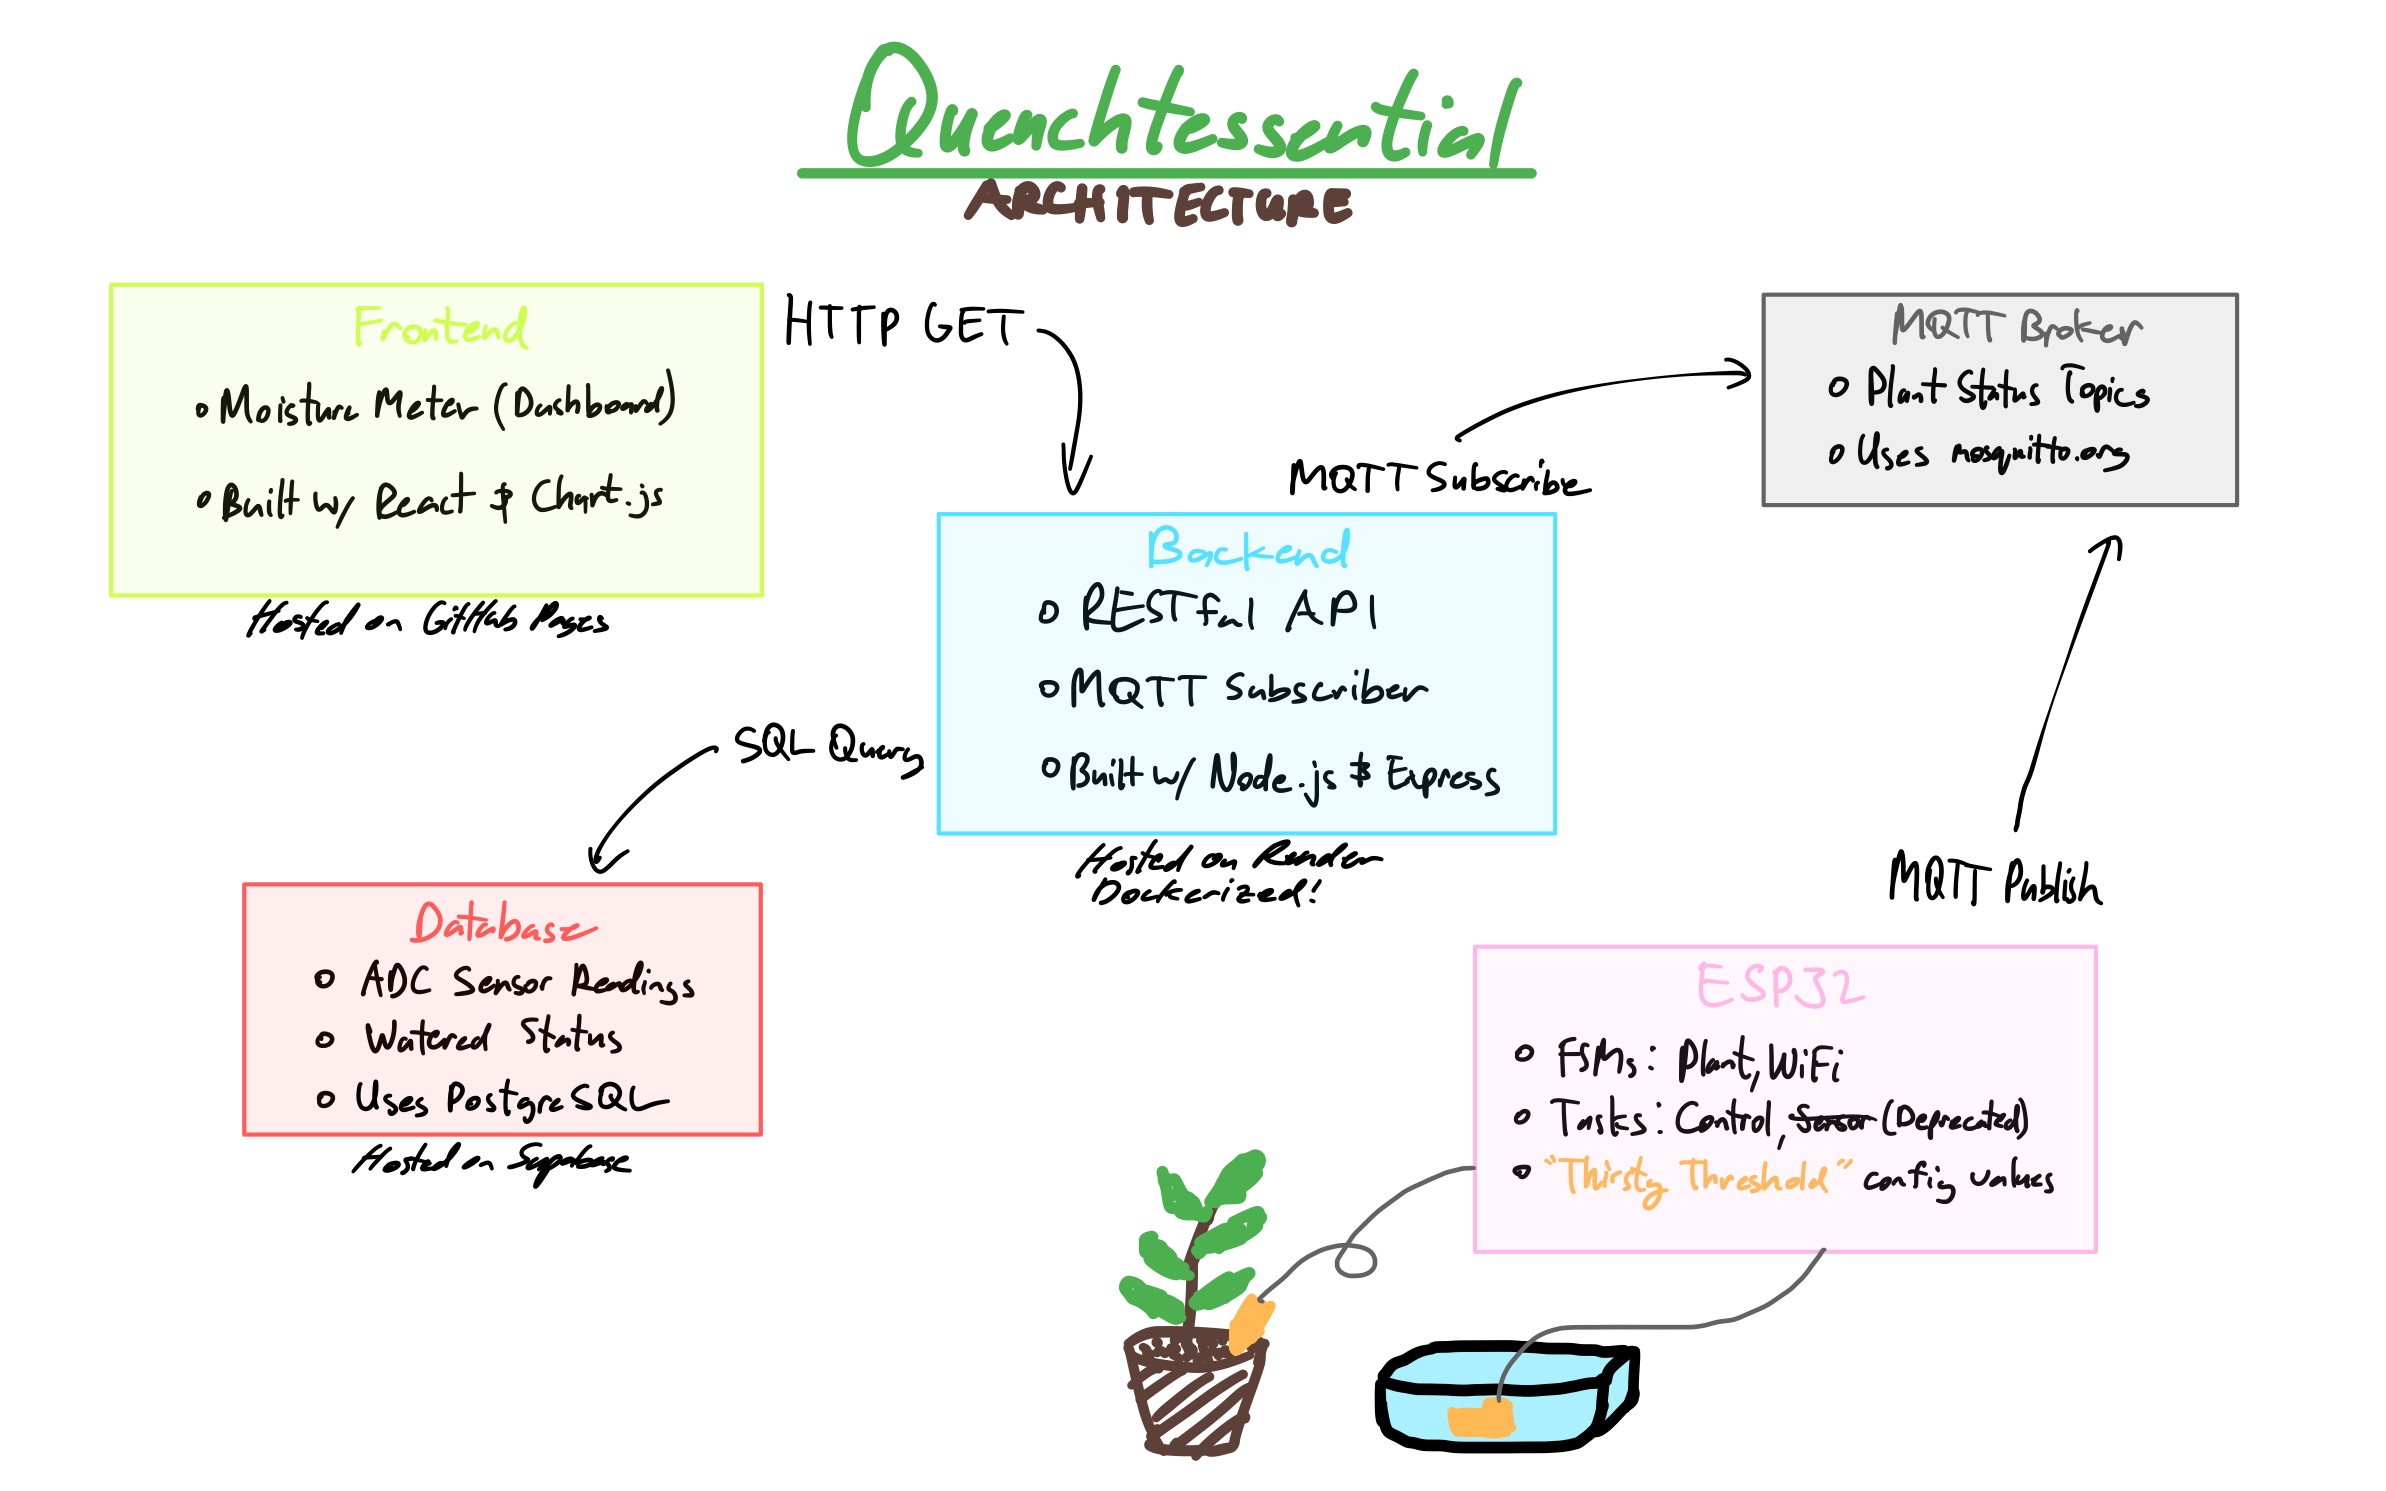 Quenchtessential
ARCHITECTURE
Frontend
Moisture Meter (Dashboard)
Built w/ React & Chart.js
Hosted on GitHub Pages
HTTP GET
MQTT Subscribe
MQTT Broker
Plant Status Topics
Uses mosquitto.org
Backend
RESTful API
MQTT Subscriber
Built w/ Node.js & Express
Hosted on Render
Dockerized!
SQL Query
Database
ADC Sensor Readings
Watered Status
Uses PostgreSQL
Hosted on Supabase
MQTT Publish
ESP32
FSMs: Plant, WiFi
Tasks: Control, Sensor (Deprecated)
"Thirsty Threshold" config values